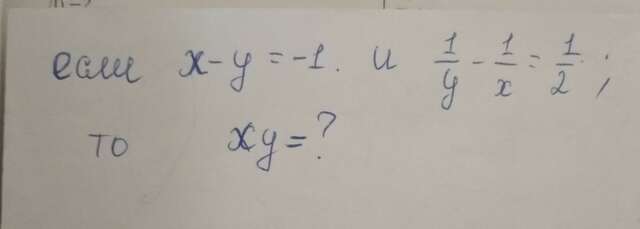 если x-y=-1. и 1/y - 1/x = 1/2 ;
то xy=?